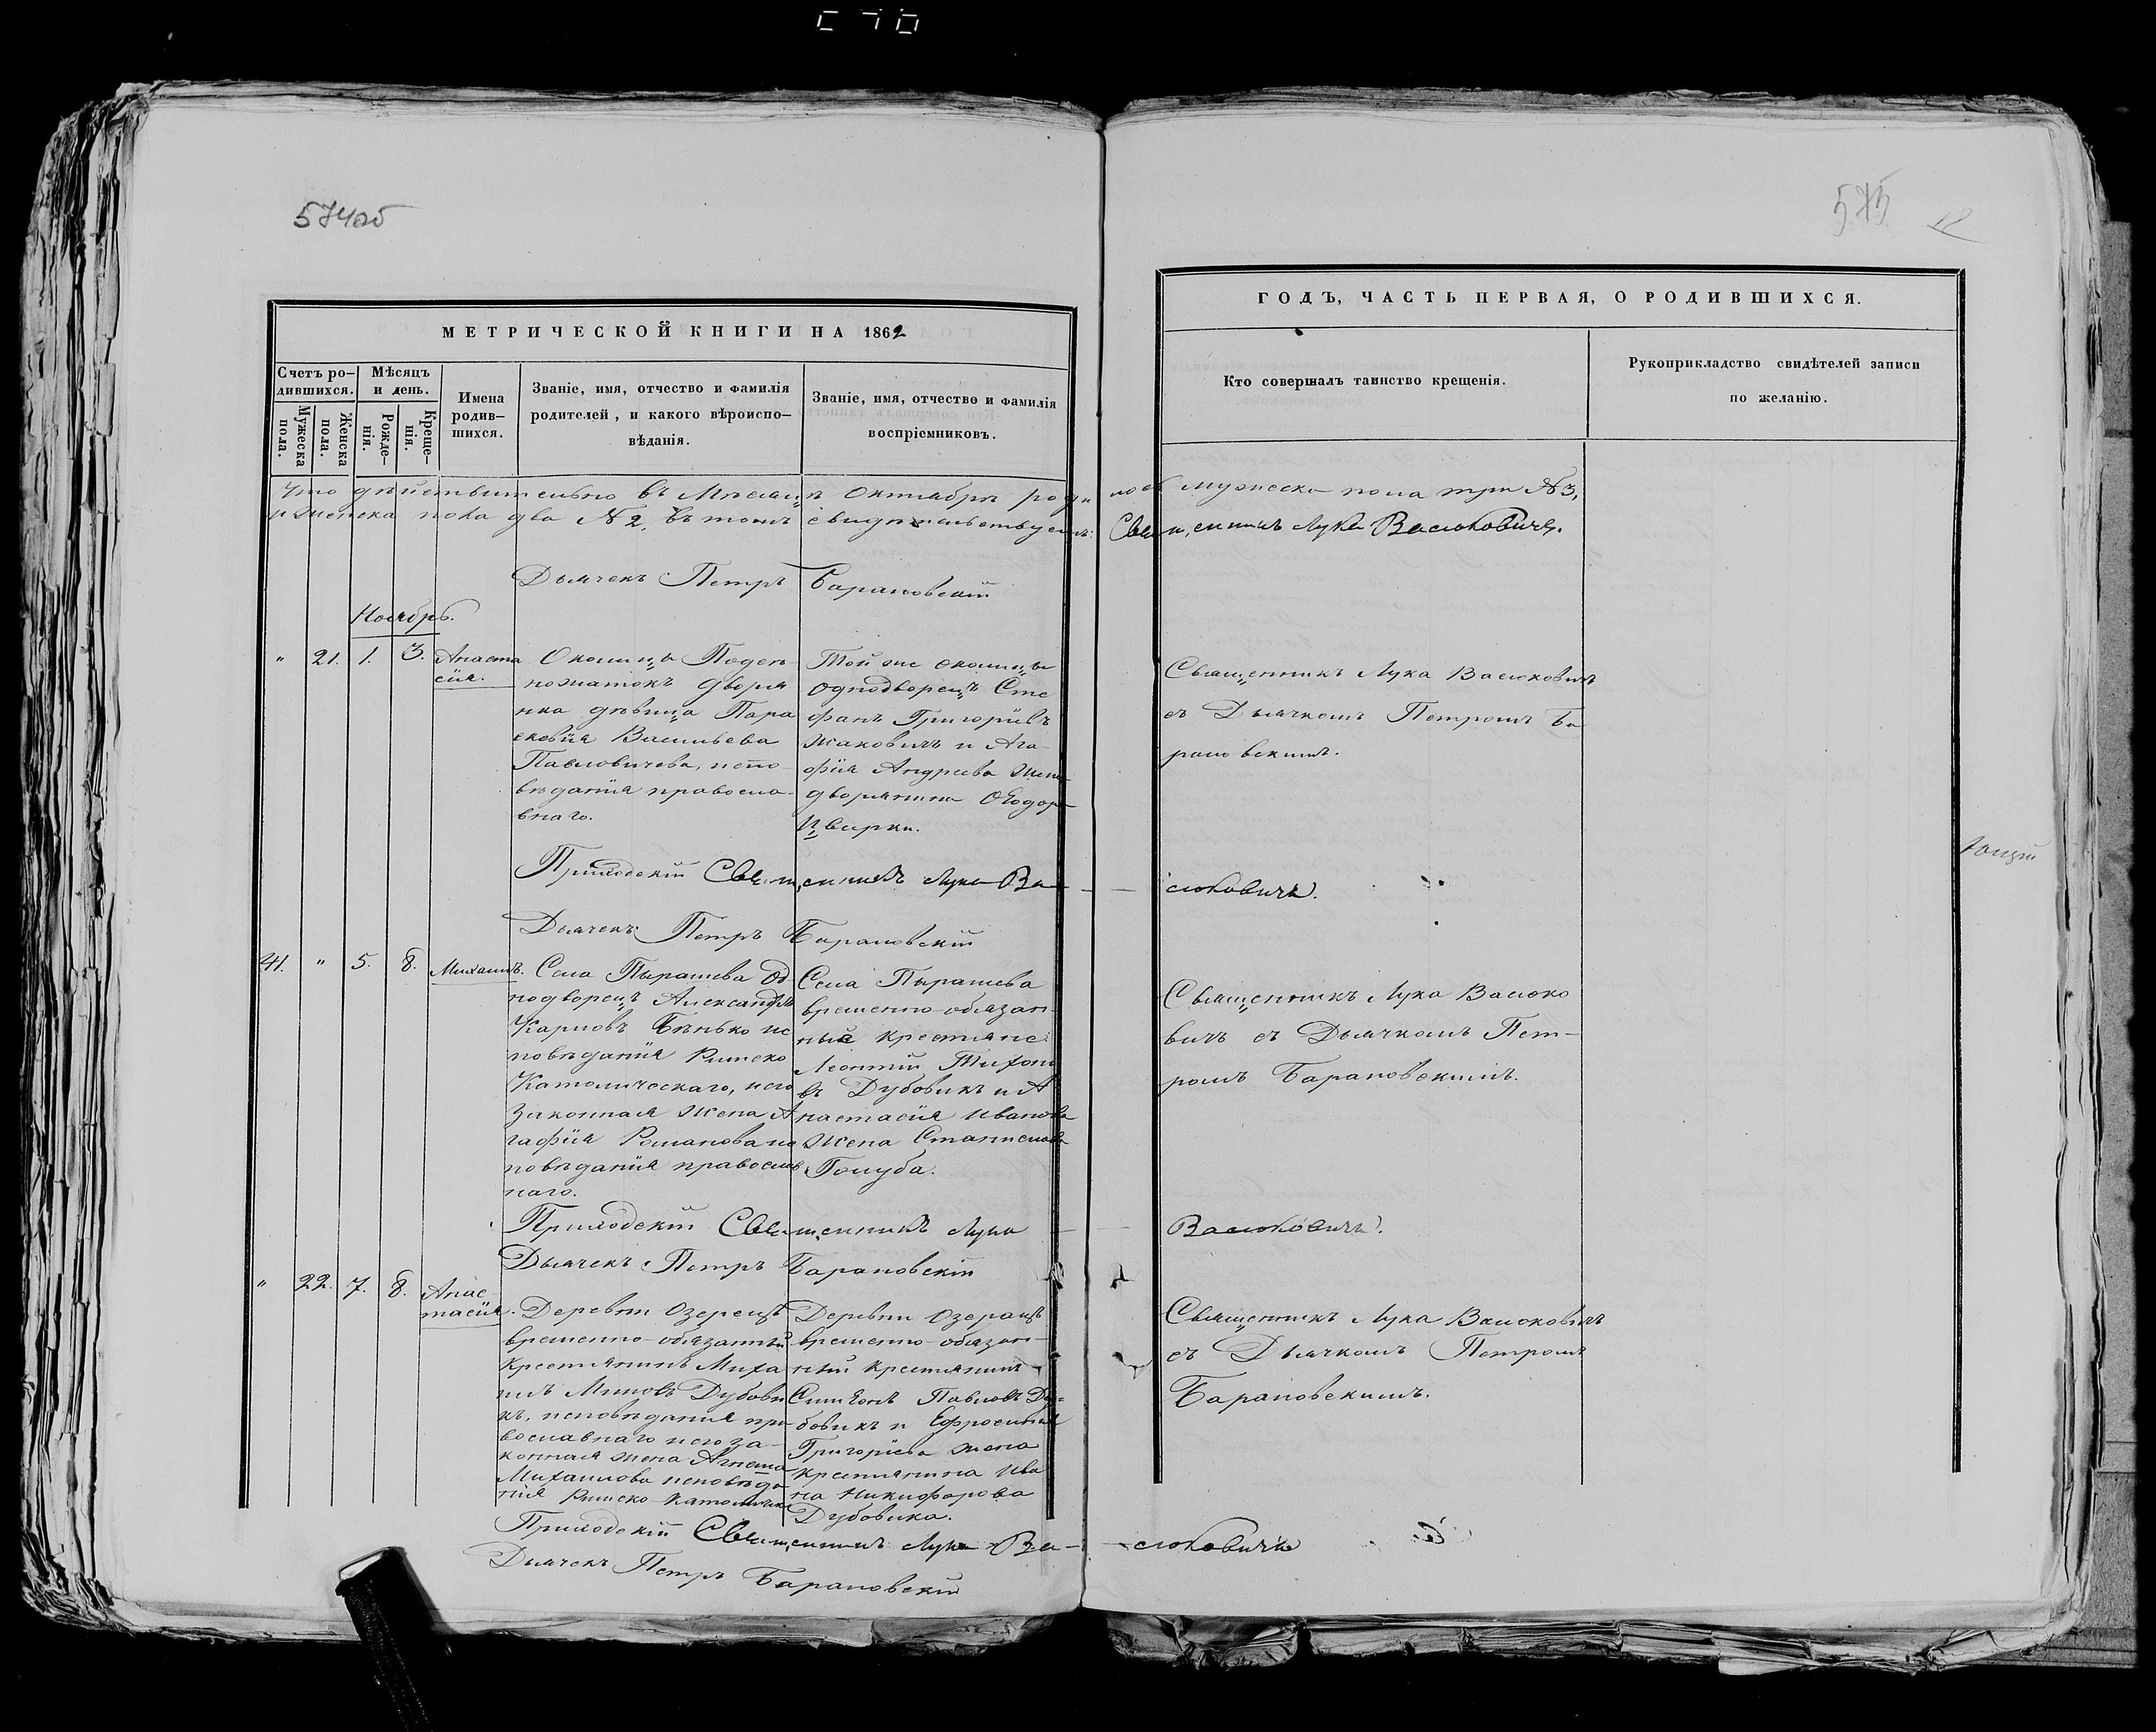 574об
575
12
МЕТРИЧЕСКОЙ КНИГИ НА 1862
Счетъ ро-
дившихся.
Мѣсяцъ
и день.
Мужеска
пола.
Женска
пола.
Рожде-
нія.
Креще-
нія.
Имена
родив-
шихся.
Званіе, имя, отчество и фамилія
родителей, и какого вѣроиспо-
вѣданія.
Званіе, имя, отчество и фамилія
воспріемниковъ.
ГОДЪ, ЧАСТЬ ПЕРВАЯ, О РОДИВШИХСЯ.
Кто совершалъ таинство крещенія.
Рукоприкладство свидѣтелей записи
по желанію.
Что дѣйствительно въ Мѣсяцѣ Октябрѣ родилось мужеска пола три №3,
и женска пола два №2, въ томъ свидѣтельствуемъ: Священникъ Лука Василовичъ.
Дьячекъ Петръ Барановскій
Ноябрь.
" 21. 1. 3.
Анаста
сія.
Околицы Подсѣ-
ножатокъ дворя
нка дѣвица Пара
скевія Васильева
Павловичева, испо-
вѣданія правосла-
внаго.
Той же околицы
однодворецъ Сте
фанъ Григоріевъ
Жаковичъ и Ага-
фія Андреева жена
дворянина Ѳеодора
Цвирки.
Священникъ Лука Васюковичъ
съ Дьячкомъ Петромъ Ба
рановскимъ.
Приходскій Священникъ Лука Ва-
сюковичъ.
Дьячекъ Петръ Барановскій
41. " 5. 8.
Михаилъ.
Села Пырашева Од
нодворецъ Александръ
Карповъ Бѣнько ис
повѣданія Римско
Католическаго, и его
законная жена А
гафія Романова ис
повѣданія православ
наго.
Села Пырашева
временно-обязан-
ные крестьяне
Леонтій Тихоно
въ Дубовикъ и А
настасія Иванова
жена Станислава
Голуба.
Священникъ Лука Васюко
вичъ съ Дьячкомъ Пет-
ромъ Барановскимъ.
Приходскій Священникъ Лука
Васюковичъ.
Дьячекъ Петръ Барановскій
" 22. 7. 8.
Анас
тасія.
Деревни Озерецъ
временно-обязанный
крестьянинъ Миха
илъ Миновъ Дубови
къ, исповѣданія пра
вославнаго и его за-
конная жена Анета
Михаилова исповѣда
нія Римско-Католическ
Деревни Озерецъ
временно-обязан-
ный крестьянинъ
Симеонъ Павловъ Ду-
бовикъ и Ефросинія
Григоріева жена
крестьянина Ива
на Никифорова
Дубовика.
Священникъ Лука Васюковичъ
съ Дьячкомъ Петромъ
Барановскимъ.
Приходскій Священникъ Лука Ва-
сюковичъ
Дьячекъ Петръ Барановскій